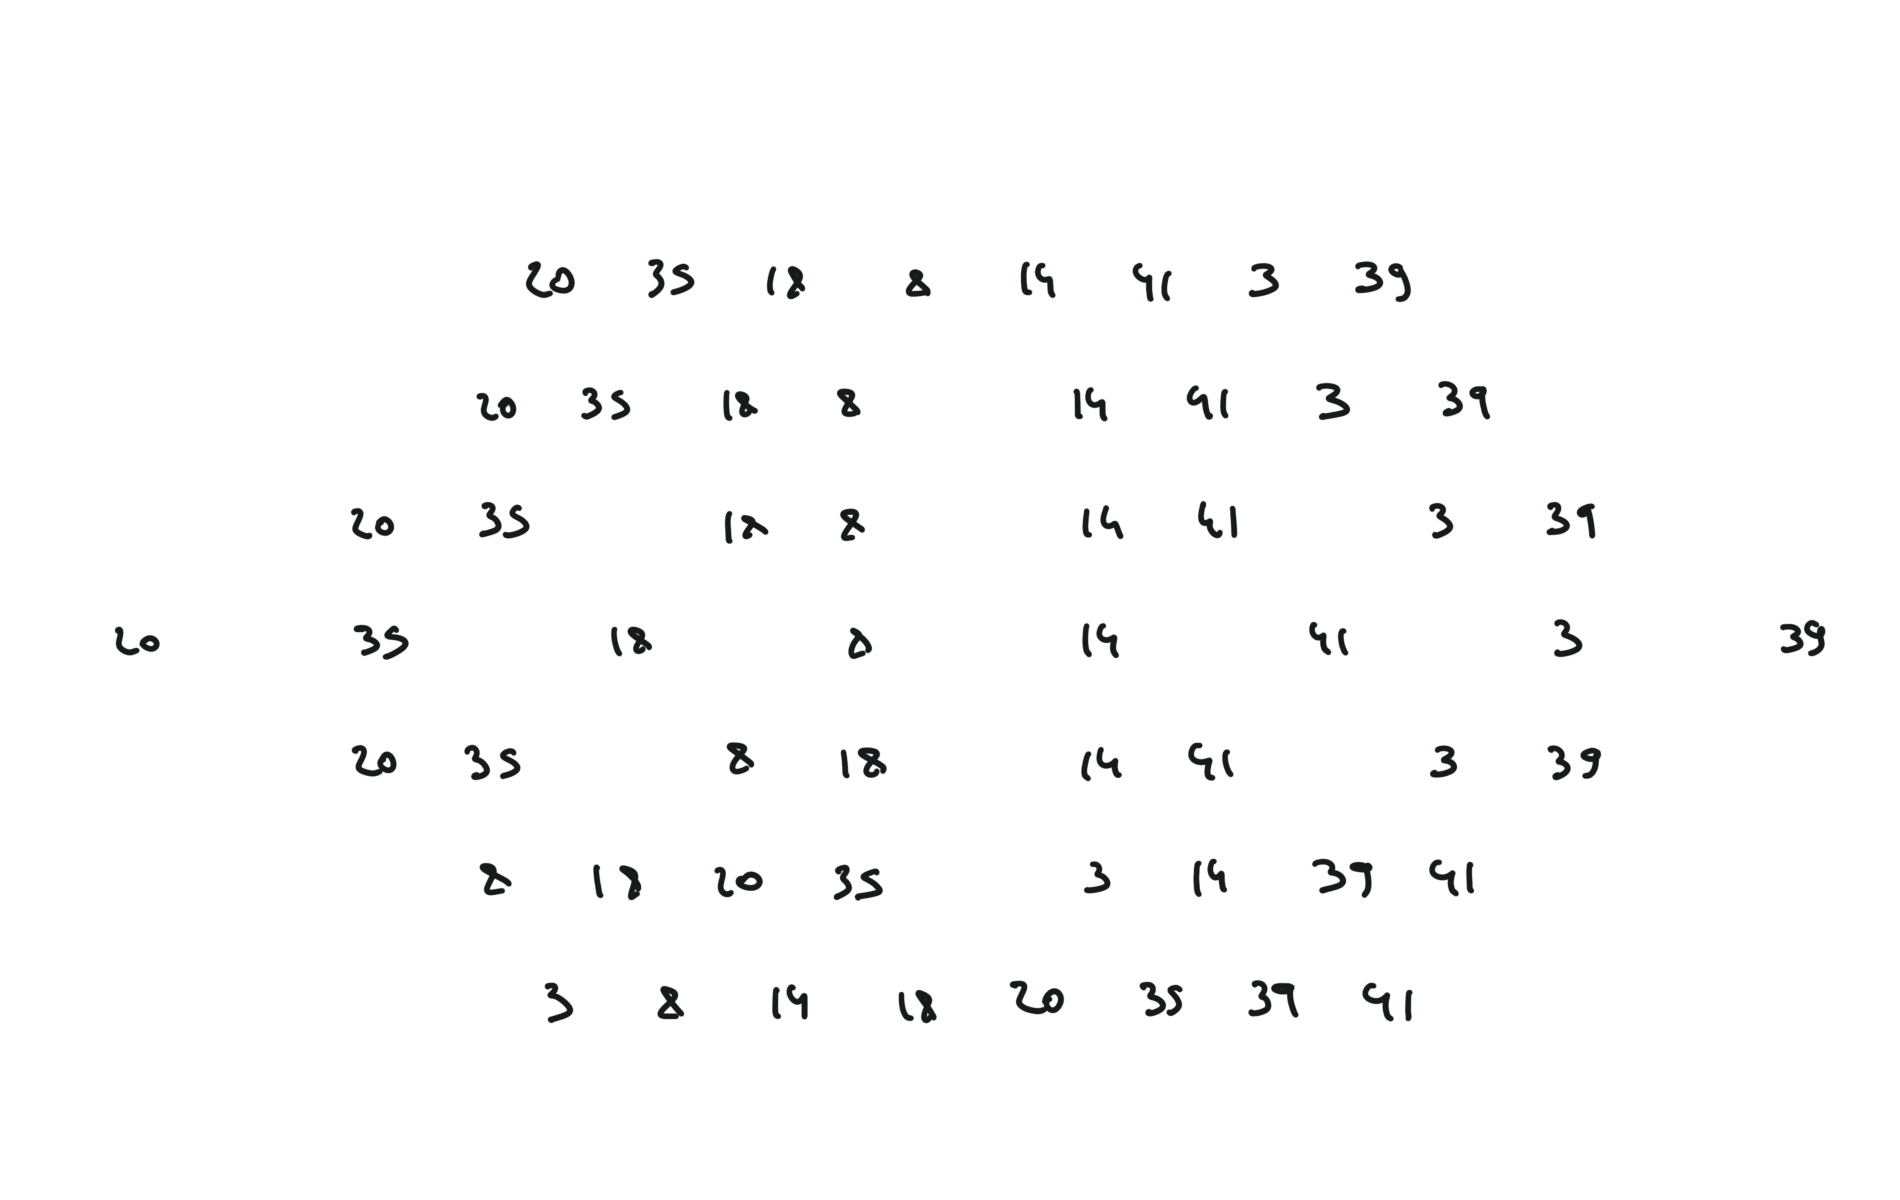 20 35 18 8 14 41 3 39
20 35 18 8 14 41 3 39
20 35 18 8 14 41 3 39
20 35 18 8 14 41 3 39
20 35 8 18 14 41 3 39
8 18 20 35 3 14 39 41
3 8 14 18 20 35 39 41